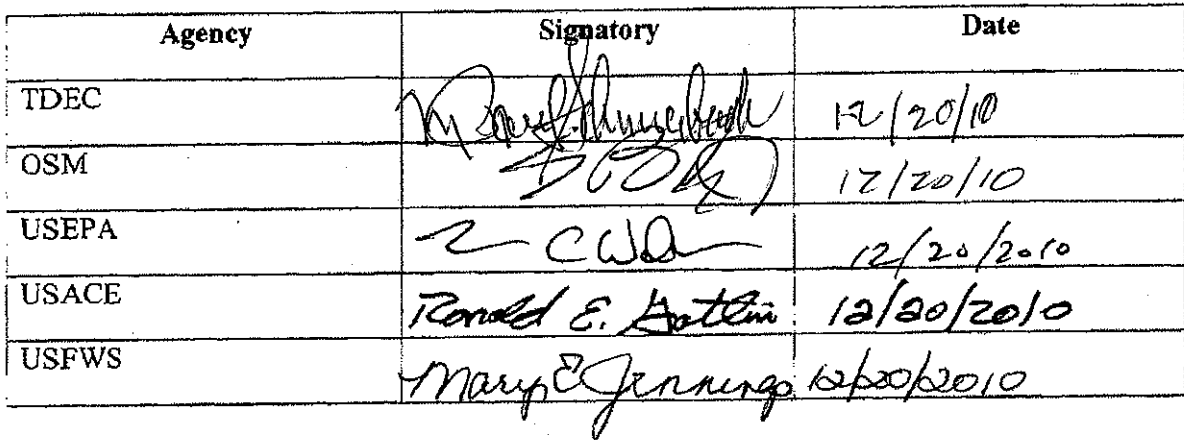 Agency Signatory Date
TDEC 12/20/10
OSM 12/20/10
USEPA 12/20/2010
USACE Ronald E. Gatlin 12/20/2010
USFWS Mary E Jennings 12/20/2010